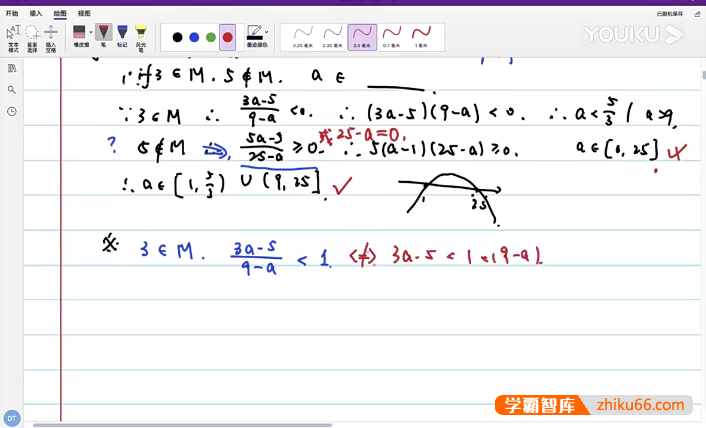 开始 插入 绘图 视图
已脱机保存
文本模式
套索选择
插入空格
橡皮擦
笔
标记
荧光笔
0.25 毫米
0.35 毫米
0.5 毫米
0.7 毫米
1 毫米
墨迹颜色
YOUKU
if 3 ∈ M. 5 ∉ M. a ∈ ______.
∵ 3 ∈ M ∴ (3a-5)/(9-a) < 0. ∴ (3a-5)(9-a) < 0. ∴ a < 5/3 / a > 9.
或 25-a=0.
? 5 ∉ M ⇒ (5a-5)/(25-a) ≥ 0. ∴ 5(a-1)(25-a) ≥ 0. a ∈ [1, 25] ✓
∴ a ∈ [1, 5/3) ∪ (9, 25]. ✓
1 25
※ 3 ∈ M. (3a-5)/(9-a) < 1. <≠> 3a-5 < 1×(9-a)
DT
学霸智库 zhiku66.com